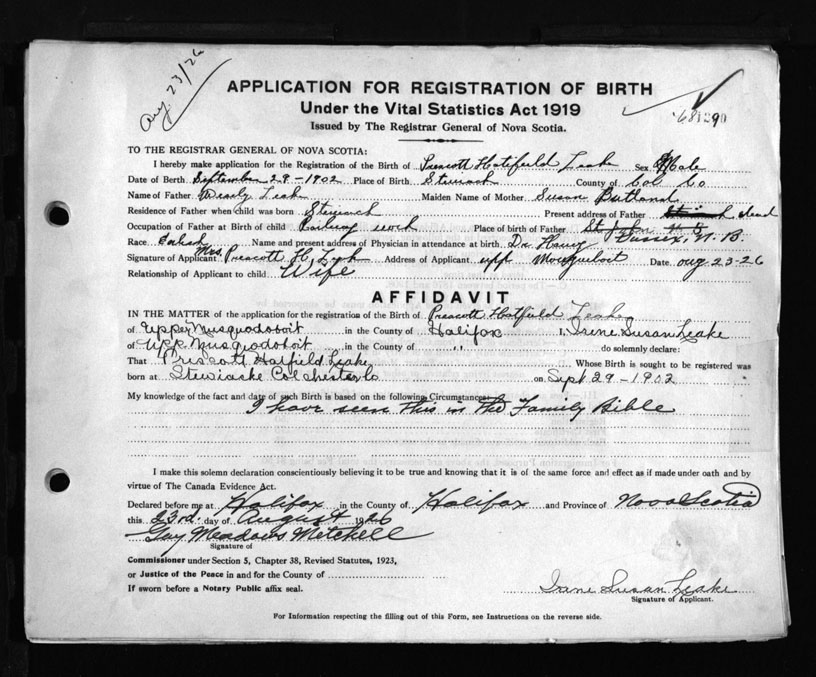 Aug 23/26
APPLICATION FOR REGISTRATION OF BIRTH
Under the Vital Statistics Act 1919
Issued by The Registrar General of Nova Scotia.
TO THE REGISTRAR GENERAL OF NOVA SCOTIA:
I hereby make application for the Registration of the Birth of Prescott Hatfield Leak Sex Male
Date of Birth September 29-1902 Place of Birth Stewiack County of Col Co
Name of Father Wesely Leak Maiden Name of Mother Susan Butland
Residence of Father when child was born Stewiack Present address of Father dead
Occupation of Father at Birth of child Railway work Place of birth of Father St John N B
Sussex, N. B.
Race Name and present address of Physician in attendance at birth Dr.
Signature of Applicant Mrs. Prescott H. Address of Applicant upp Date Aug 23-26
Relationship of Applicant to child Wife
AFFIDAVIT
IN THE MATTER of the application for the registration of the Birth of Prescott Hatfield Leake
of Upper Musquodoboit in the County of Halifax I, Irene Susan Leake
of Upp. Musquodoboit in the County of " do solemnly declare:
That Priscott Hatfield Leake Whose Birth is sought to be registered was
born at Stewiacke Colchester Co on Sept 29-1902
My knowledge of the fact and date of such Birth is based on the following Circumstances:
I have seen this in the Family Bible
I make this solemn declaration conscientiously believing it to be true and knowing that it is of the same force and effect as if made under oath and by
virtue of The Canada Evidence Act.
Declared before me at Halifax in the County of Halifax and Province of Nova Scotia
this 23rd day of August 1926
Guy Meadows Mitchell
Signature of
Commissioner under Section 5, Chapter 38, Revised Statutes, 1923,
or Justice of the Peace in and for the County of
If sworn before a Notary Public affix seal.
Irene Susan Leake
Signature of Applicant.
For Information respecting the filling out of this Form, see Instructions on the reverse side.